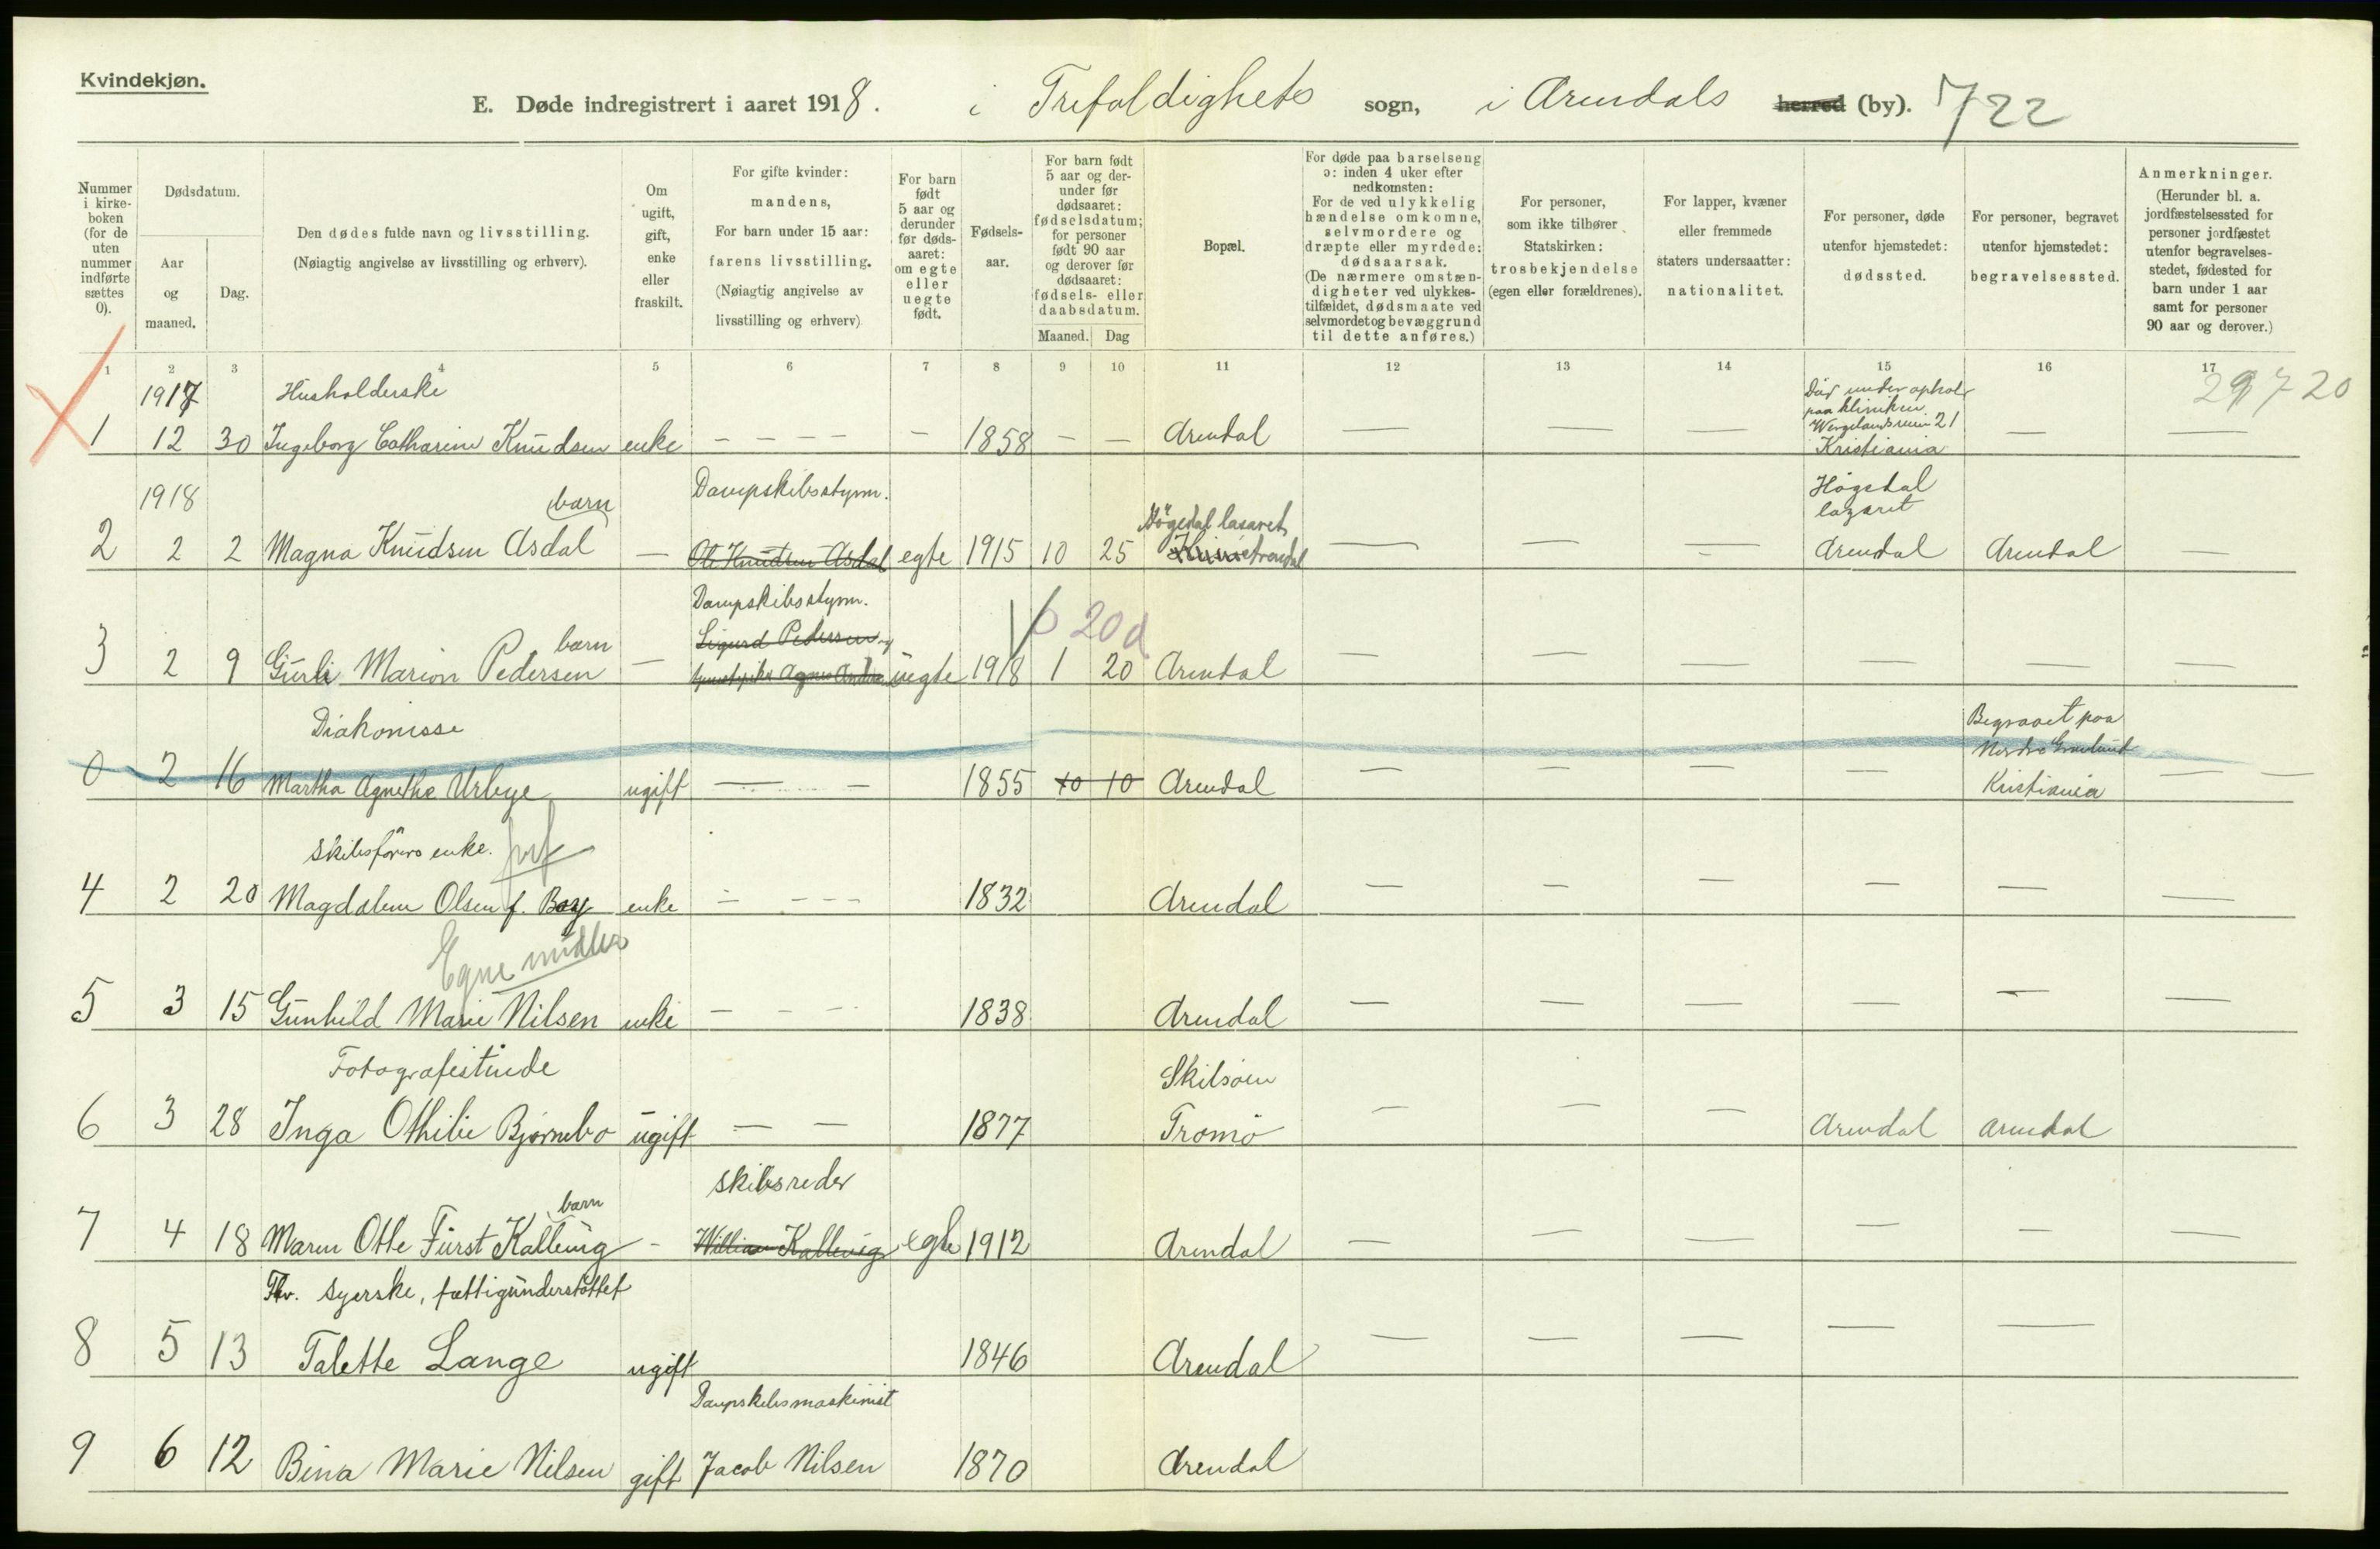 Kvindekjøn.
E. Døde indregistrert i aaret 1918. i Trefoldigheds sogn, i Arendals herred (by). 722
Nummer i kirkeboken (for de uten nummer indførte sættes 0).
Dødsdatum.
Aar og maaned.
Dag.
Den dødes fulde navn og livsstilling.
(Nøiagtig angivelse av livsstilling og erhverv).
Om ugift, gift, enke eller fraskilt.
For gifte kvinder: mandens,
For barn under 15 aar: farens livsstilling.
(Nøiagtig angivelse av livsstilling og erhverv)
For barn født 5 aar og derunder før dødsaaret: om egte eller uegte født.
Fødselsaar.
For barn født 5 aar og derunder før dødsaaret: fødselsdatum; for personer født 90 aar og derover før dødsaaret: fødsels- eller daabsdatum.
Maaned. Dag
Bopæl.
For døde paa barselseng ɔ: inden 4 uker efter nedkomsten:
For de ved ulykkelig hændelse omkomne, selvmordere og dræpte eller myrdede: dødsaarsak.
(De nærmere omstændigheter ved ulykkestilfældet, dødsmaate ved selvmordet og bevæggrund til dette anføres.)
For personer, som ikke tilhører Statskirken: trosbekjendelse (egen eller forældrenes).
For lapper, kvæner eller fremmede staters undersaatter: nationalitet.
For personer, døde utenfor hjemstedet: dødssted.
For personer, begravet utenfor hjemstedet: begravelsessted.
Anmerkninger.
(Herunder bl. a. jordfæstelsessted for personer jordfæstet utenfor begravelsesstedet, fødested for barn under 1 aar samt for personer 90 aar og derover.)
1 2 3 4 5 6 7 8 9 10 11 12 13 14 15 16 17
1917 Husholderske Død under ophold 29720
paa kliniken
Wergelandsveien 21
1 12 30 Ingeborg Catharine Knudsen enke – – – – – 1858 – – Arendal — — — Kristiania — —
1918 barn Dampskibsstyrm. Høgedal lazaret
Høgedal lasaret
2 2 2 Magna Knudsen Asdal — Ole Knudsen Asdal egte 1915 10 25 Arendal — — – Arendal Arendal —
Dampskibsstyrm. 20 d
barn Sigurd Pedersen og
3 2 9 Gurli Marion Pedersen — Agnes uegte 1918 1 20 Arendal — — — — — —
Diakonisse Begravet paa
Nordre Gravlund
0 2 16 Martha Agnethe Urbye ugift — — 1855 10 10 Arendal — — — — Kristiania — —
Skibsførers enke.
4 2 20 Magdalene Olsen f. Boy enke – – – – 1832 Arendal — — — — — —
Egne midler
5 3 15 Gunhild Marie Nilsen enke – – – 1838 Arendal — — — — — —
Fotografistinde Skilsøen
6 3 28 Inga Othilie Bjørnebo ugift — — 1877 Tromø — — — Arendal Arendal
barn Skibsreder
7 4 18 Maren Otte Fürst Kallevig – William Kallevig egte 1912 Arendal — — — — — —
Fhv. syerske, fattigunderstøttet
8 5 13 Talette Lange ugift 1846 Arendal — — — — —
Dampskibsmaskinist
9 6 12 Bina Marie Nilsen gift Jacob Nilsen 1870 Arendal